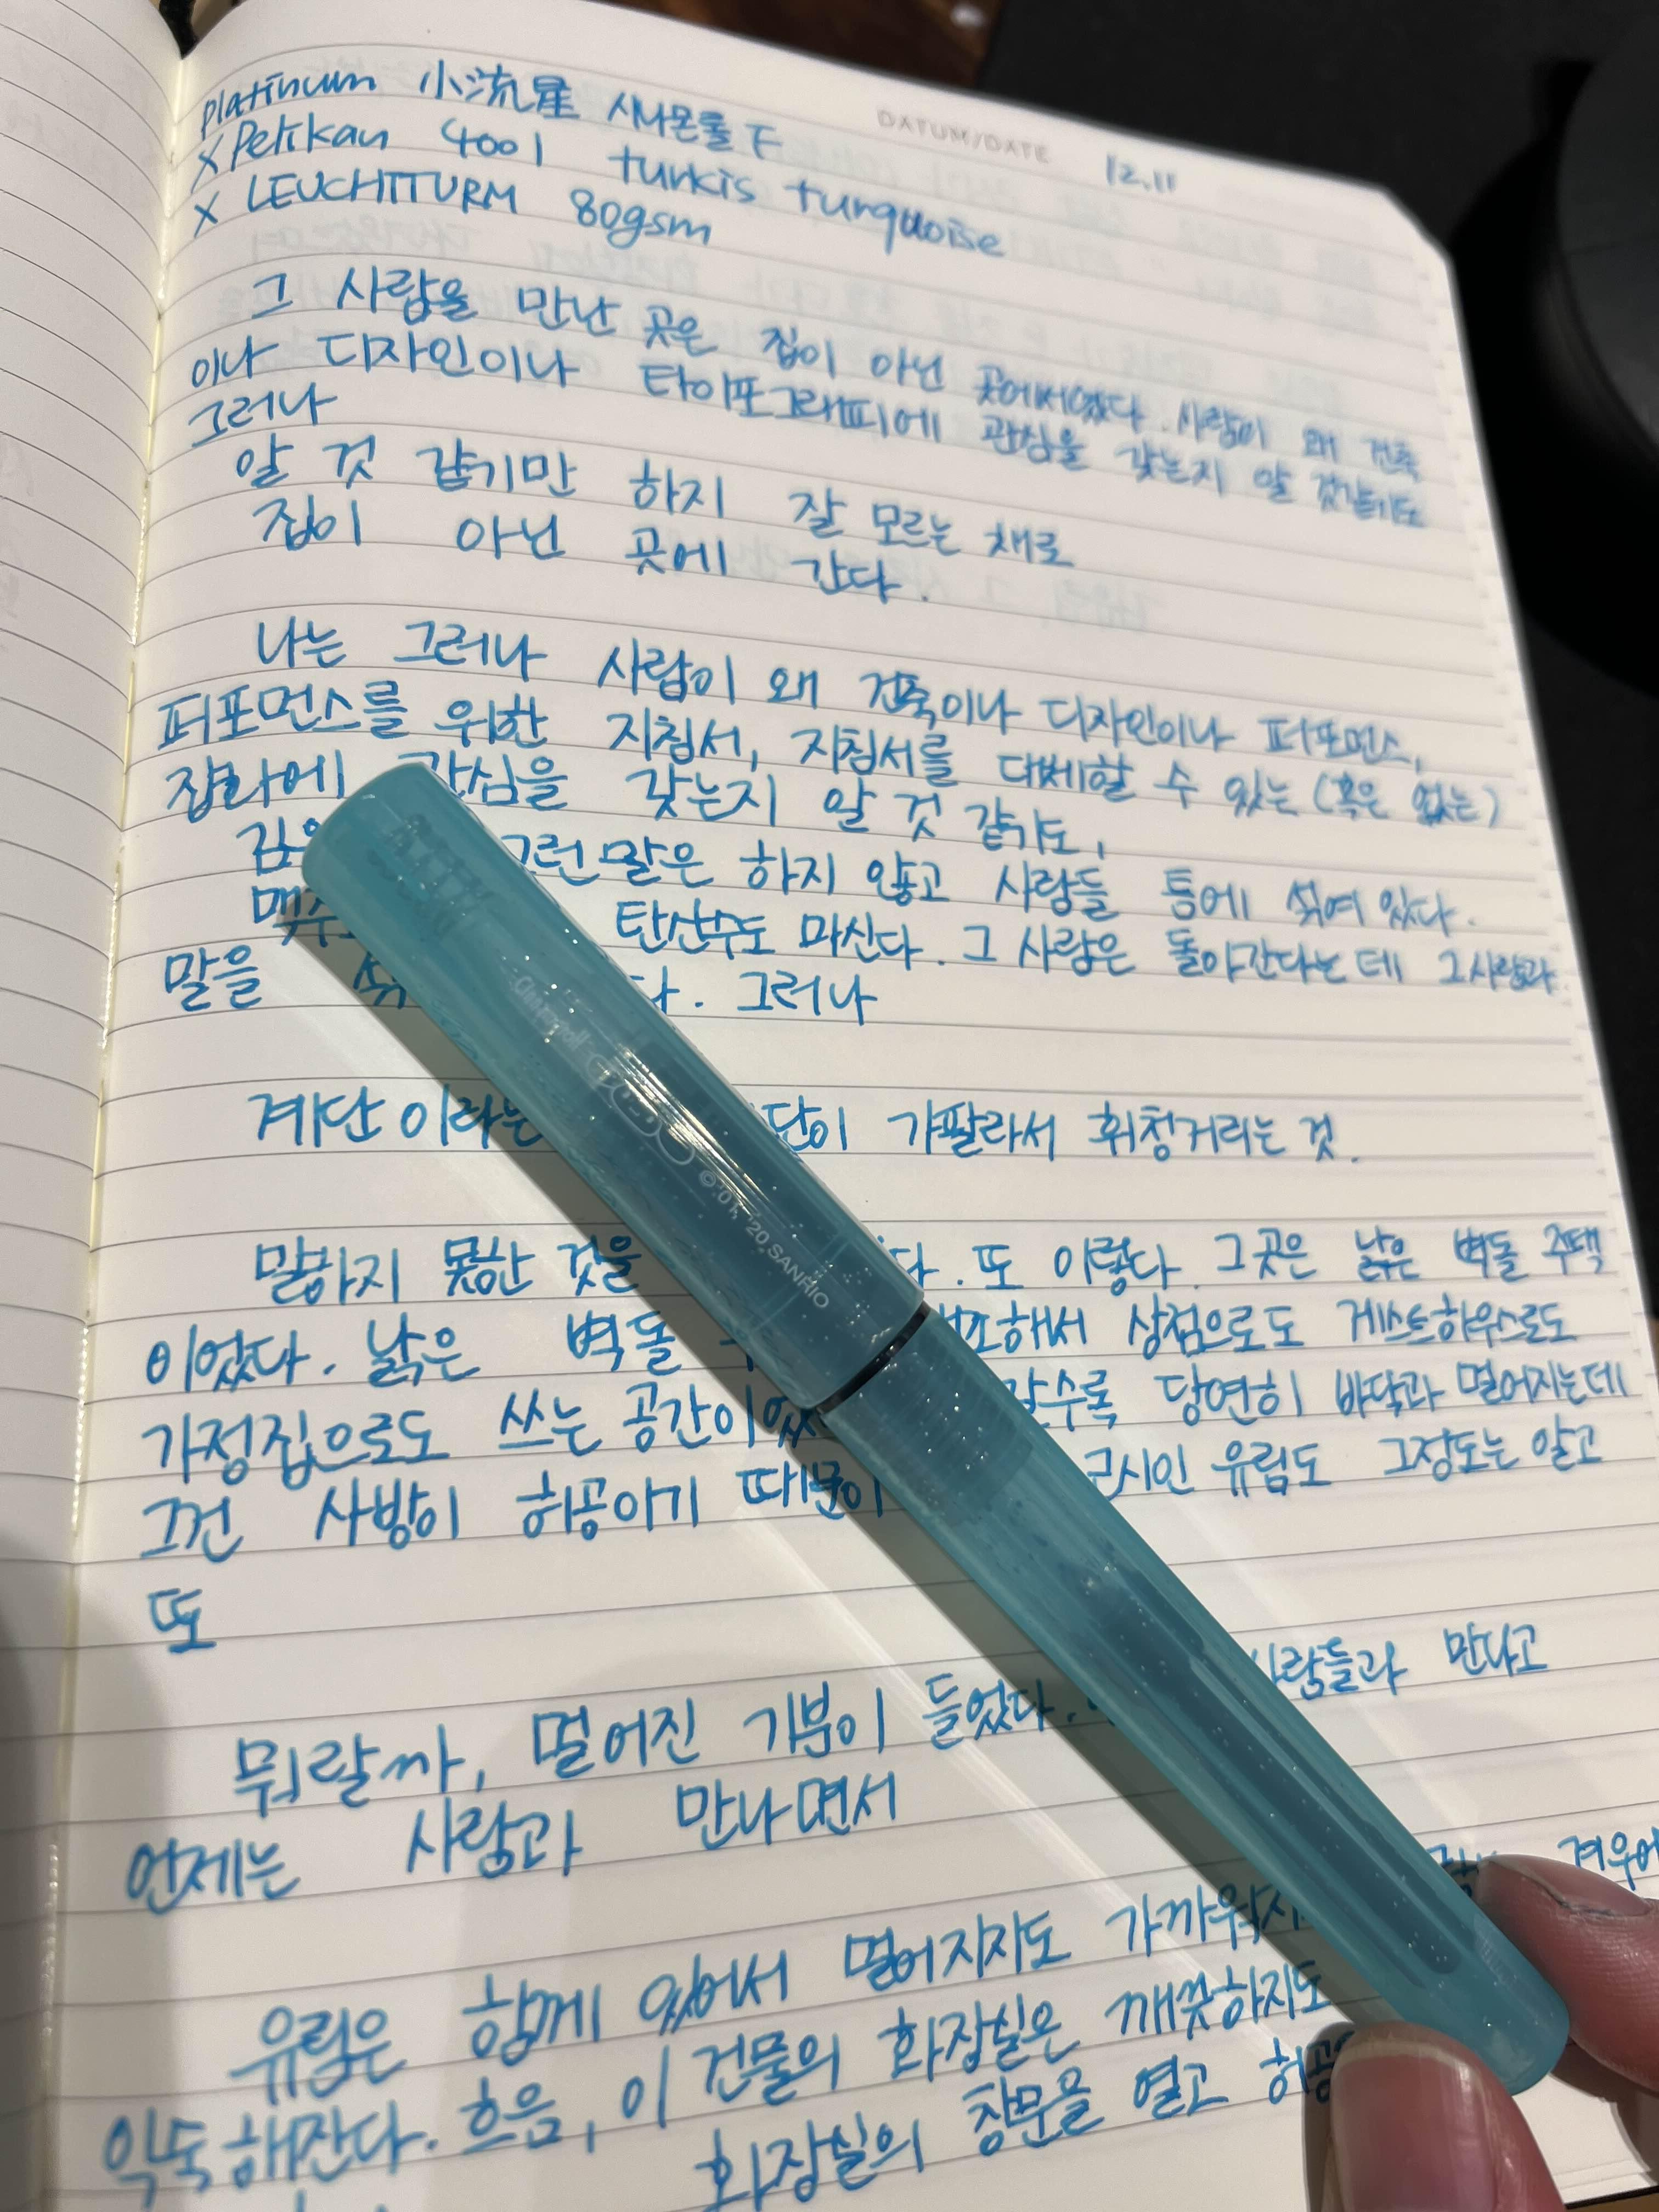 platinum 小流星 시나몬롤 F
DATUM/DATE 12.11
x Pelikan 4001 turkis turquoise
x LEUCHTTURM 80gsm
그 사람을 만난 곳은 집이 아닌 곳에서였다. 사람이 왜 건축
이나 디자인이나 타이포그래피에 관심을 갖는지 알 것같기도
그러나
알 것 같기만 하지 잘 모르는 채로
집이 아닌 곳에 간다.
나는 그러나 사람이 왜 건축이나 디자인이나 퍼포먼스,
퍼포먼스를 위한 지침서, 지침서를 대체할 수 있는 (혹은 없는)
잡화에 관심을 갖는지 알 것 같기도,
그런 말은 하지 않고 사람들 틈에 섞여 있다.
탄산수도 마신다. 그 사람은 돌아간다는데 그사람과
말을 다. 그러나
계단이라는 단이 가팔라서 휘청거리는 것.
말하지 못한 것을 다. 또 이렇다. 그곳은 낡은 벽돌 주택
이었다. 낡은 벽돌 해서 상점으로도 게스트하우스로도
가정집으로도 쓰는 공간이었 갈수록 당연히 바닥과 멀어지는데
그건 사방이 허공이기 때문이 근시인 유림도 그정도는 알고
또
뭐랄까, 멀어진 기분이 들었다. 사람들과 만나고
언제는 사람과 만나면서
경우에
유림은 함께 있어서 멀어지지도 가까워지
익숙해잔다. 흐음, 이 건물의 화장실은 깨끗하지도
화장실의 창문을 열고 허공
Cinnamoroll
© '01, '20 SANRIO